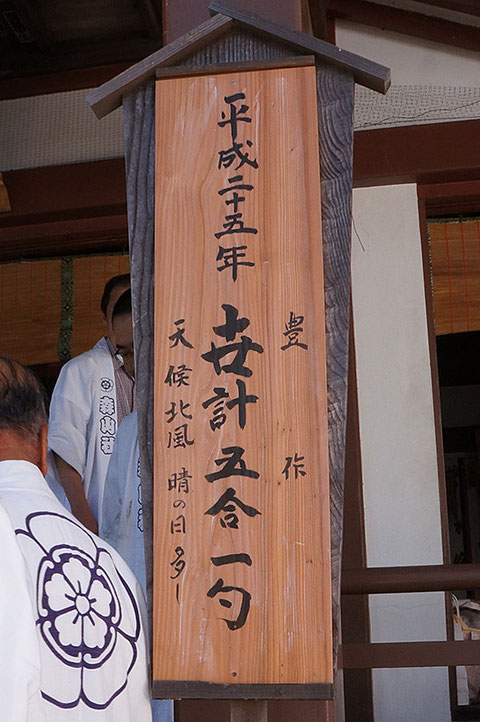 豊作
平成二十五年
壱計五合一勺
天候北風 晴の日多し